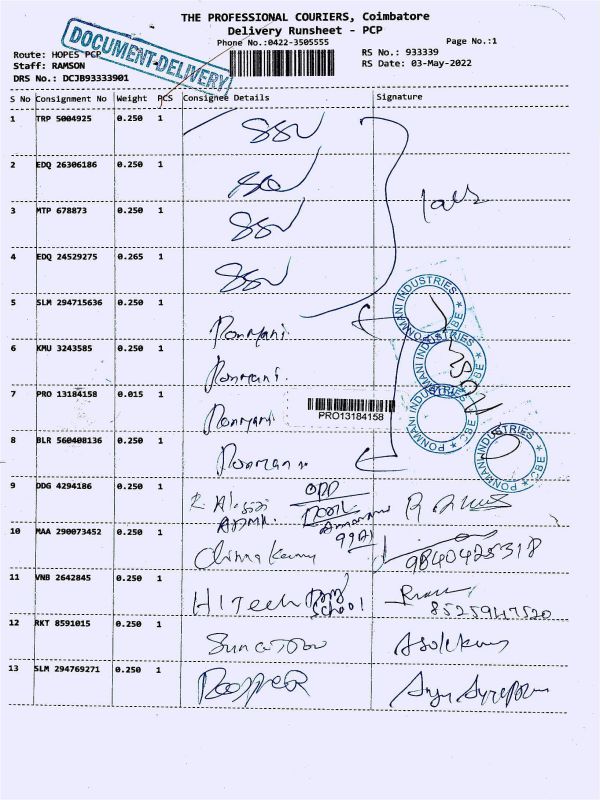 THE PROFESSIONAL COURIERS, Coimbatore
Delivery Runsheet - PCP
Phone No.:0422-3505555
Page No.:1
DOCUMENT-DELIVERY
Route: HOPES PCP
Staff: RAMSON
DRS No.: DCJB93333901
RS No.: 933339
RS Date: 03-May-2022
S No Consignment No Weight PCS Consignee Details Signature
1 TRP 5004925 0.250 1 SSN
2 EDQ 26306186 0.250 1
3 MTP 678873 0.250 1 SSN
4 EDQ 24529275 0.265 1 SSN
5 SLM 294715636 0.250 1 Ponmani. PONMANI INDUSTRIES CBE
6 KMU 3243585 0.250 1 Ponmani. PONMANI INDUSTRIES CBE
7 PRO 13184158 0.015 1 Ponmani PRO13184158 PONMANI INDUSTRIES CBE
8 BLR 560408136 0.250 1 Ponmani PONMANI INDUSTRIES CBE
9 DDG 4294186 0.250 1
10 MAA 290073452 0.250 1 9840425318
11 VNB 2642845 0.250 1 HITech School 8525947520
12 RKT 8591015 0.250 1
13 SLM 294769271 0.250 1